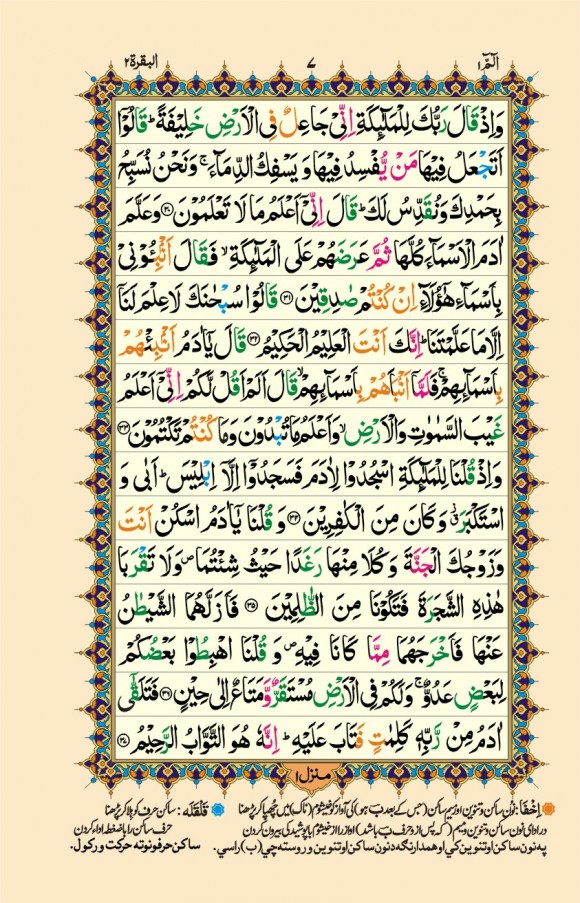 الٓمّٓ ١ ٧ البقرة ٢
وَاِذْ قَالَ رَبُّكَ لِلْمَلٰٓئِكَةِ اِنِّىْ جَاعِلٌ فِى الْاَرْضِ خَلِيْفَةً ؕ قَالُوْٓا
اَتَجْعَلُ فِيْهَا مَنْ يُّفْسِدُ فِيْهَا وَيَسْفِكُ الدِّمَآءَ ۚ وَنَحْنُ نُسَبِّحُ
بِحَمْدِكَ وَنُقَدِّسُ لَكَ ؕ قَالَ اِنِّىْٓ اَعْلَمُ مَا لَا تَعْلَمُوْنَ ﴿۳۰﴾ وَعَلَّمَ
اٰدَمَ الْاَسْمَآءَ كُلَّهَا ثُمَّ عَرَضَهُمْ عَلَى الْمَلٰٓئِكَةِ ۙ فَقَالَ اَنْۢبِـُٔوْنِىْ
بِاَسْمَآءِ هٰٓؤُلَآءِ اِنْ كُنْتُمْ صٰدِقِيْنَ ﴿۳۱﴾ قَالُوْا سُبْحٰنَكَ لَا عِلْمَ لَنَآ
اِلَّا مَا عَلَّمْتَنَا ؕ اِنَّكَ اَنْتَ الْعَلِيْمُ الْحَكِيْمُ ﴿۳۲﴾ قَالَ يٰٓاٰدَمُ اَنْۢبِئْهُمْ
بِاَسْمَآئِهِمْ ۚ فَلَمَّآ اَنْۢبَاَهُمْ بِاَسْمَآئِهِمْ ۙ قَالَ اَلَمْ اَقُلْ لَّكُمْ اِنِّىْٓ اَعْلَمُ
غَيْبَ السَّمٰوٰتِ وَالْاَرْضِ ۙ وَاَعْلَمُ مَا تُبْدُوْنَ وَمَا كُنْتُمْ تَكْتُمُوْنَ ﴿۳۳﴾
وَاِذْ قُلْنَا لِلْمَلٰٓئِكَةِ اسْجُدُوْا لِاٰدَمَ فَسَجَدُوْٓا اِلَّآ اِبْلِيْسَ ؕ اَبٰى وَ
اسْتَكْبَرَ ۫ وَكَانَ مِنَ الْكٰفِرِيْنَ ﴿۳۴﴾ وَقُلْنَا يٰٓاٰدَمُ اسْكُنْ اَنْتَ
وَزَوْجُكَ الْجَنَّةَ وَكُلَا مِنْهَا رَغَدًا حَيْثُ شِئْتُمَا ۪ وَلَا تَقْرَبَا
هٰذِهِ الشَّجَرَةَ فَتَكُوْنَا مِنَ الظّٰلِمِيْنَ ﴿۳۵﴾ فَاَزَلَّهُمَا الشَّيْطٰنُ
عَنْهَا فَاَخْرَجَهُمَا مِمَّا كَانَا فِيْهِ ۪ وَقُلْنَا اهْبِطُوْا بَعْضُكُمْ
لِبَعْضٍ عَدُوٌّ ۚ وَلَكُمْ فِى الْاَرْضِ مُسْتَقَرٌّ وَّمَتَاعٌ اِلٰى حِيْنٍ ﴿۳۶﴾ فَتَلَقّٰٓى
اٰدَمُ مِنْ رَّبِّهٖ كَلِمٰتٍ فَتَابَ عَلَيْهِ ؕ اِنَّهٗ هُوَ التَّوَّابُ الرَّحِيْمُ ﴿۳۷﴾
منزل ١
اِخْفَا: نون ساکن و تنوین اور میم ساکن (جس کے بعد ب ہو) کی آواز کو خیشوم (ناک) میں چھپا کر پڑھنا قَلْقَلَه: ساکن حرف کو ہلا کر پڑھنا
در ادای نون ساکن و تنوین و میم (که پس از و حرف ب باشد) آواز را از خیشوم پوشیده بیرون کردن حرف ساکن را باضغطه ادا کردن
په نون ساکن او تنوین کي او همدارنگه د نون ساکن او تنوین و روسته چي (ب) راسي. ساکن حرفونو ته حرکت ورکول.